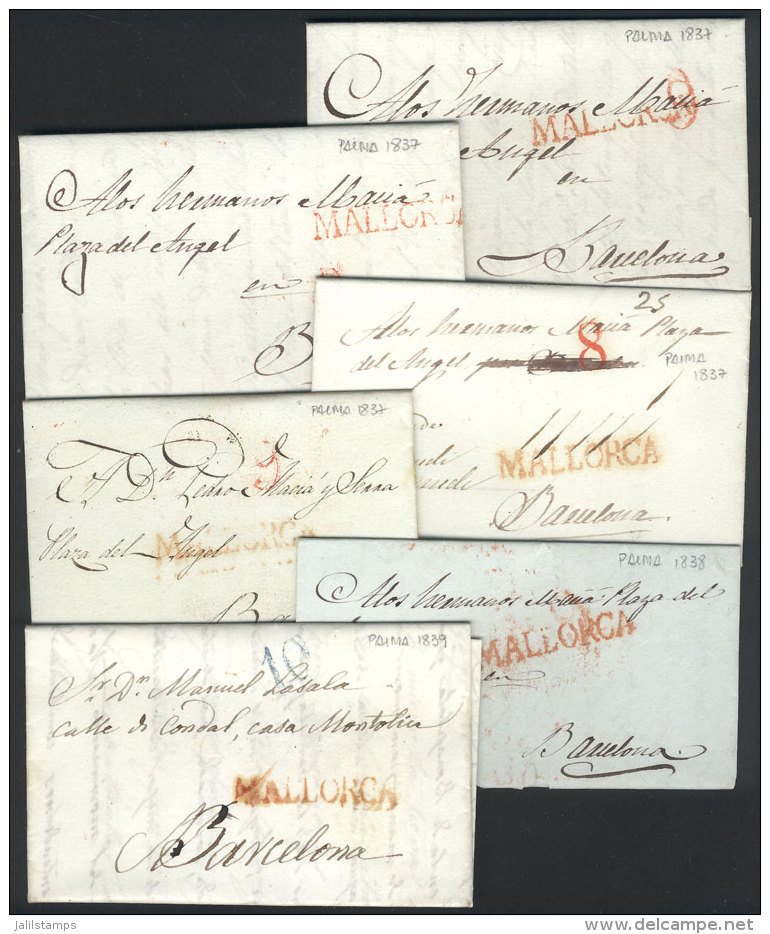 PALMA 1837
A los hermanos Maciá
8
MALLORCA
Angel
en
Barcelona
PALMA 1837
A los hermanos Maciá
MALLORCA
Plaza del Angel
en
B
25
A los hermanos Maciá Plaza
8
del Angel
PALMA
1837
MALLORCA
Barcelona
PALMA 1837
9
A Dn Pedro Maciá y Serra
MALLORCA
Plaza del Angel
Ba
PALMA 1838
A los hermanos Maciá Plaza del
MALLORCA
en
Barcelona
PALMA 1839
10
Sr Dn Manuel Lasala
calle de Condal, casa Montoliu
MALLORCA
Barcelona
jalilstamps
delcampe.net